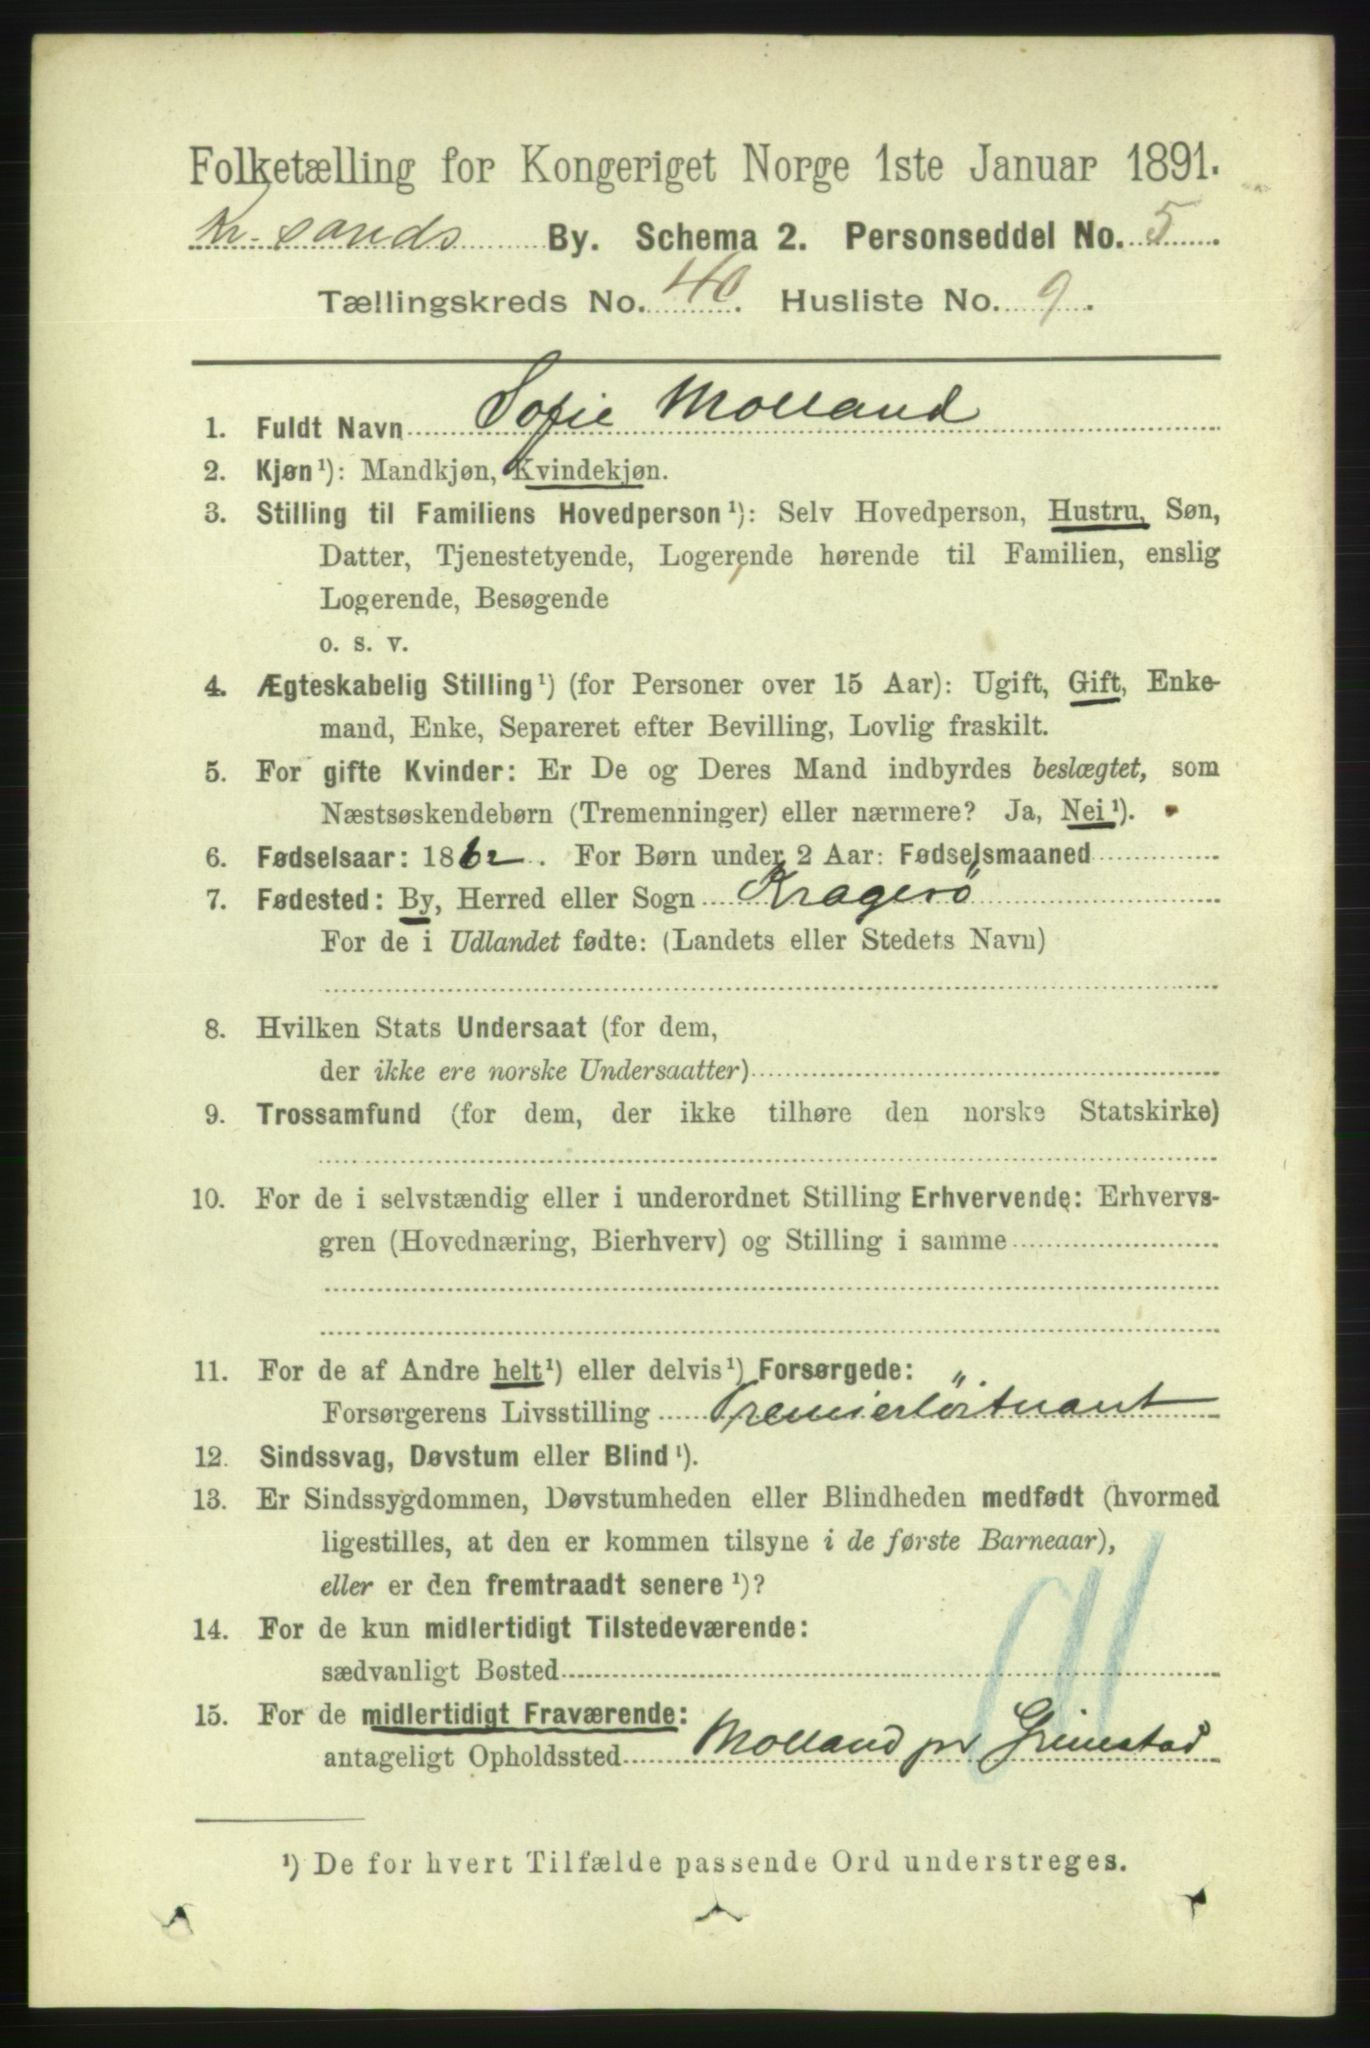 Folketælling for Kongeriget Norge 1ste Januar 1891.
Kr.sands By. Schema 2. Personseddel No. 5.
Tællingskreds No. 40. Husliste No. 9.
1. Fuldt Navn Sofie Molland
2. Kjøn¹): Mandkjøn, Kvindekjøn.
3. Stilling til Familiens Hovedperson¹): Selv Hovedperson, Hustru, Søn,
Datter, Tjenestetyende, Logerende hørende til Familien, enslig
Logerende, Besøgende
o. s. v.
4. Ægteskabelig Stilling¹) (for Personer over 15 Aar): Ugift, Gift, Enke-
mand, Enke, Separeret efter Bevilling, Lovlig fraskilt.
5. For gifte Kvinder: Er De og Deres Mand indbyrdes beslægtet, som
Næstsøskendebørn (Tremenninger) eller nærmere? Ja, Nei¹).
6. Fødselsaar: 1862. For Børn under 2 Aar: Fødselsmaaned
7. Fødested: By, Herred eller Sogn Kragerö
For de i Udlandet fødte: (Landets eller Stedets Navn)
8. Hvilken Stats Undersaat (for dem,
der ikke ere norske Undersaatter)
9. Trossamfund (for dem, der ikke tilhøre den norske Statskirke)
10. For de i selvstændig eller i underordnet Stilling Erhvervende: Erhvervs-
gren (Hovednæring, Bierhverv) og Stilling i samme
11. For de af Andre helt¹) eller delvis¹) Forsørgede:
Forsørgerens Livsstilling Premierlöitnant
12. Sindssvag, Døvstum eller Blind¹).
13. Er Sindssygdommen, Døvstumheden eller Blindheden medfødt (hvormed
ligestilles, at den er kommen tilsyne i de første Barneaar),
eller er den fremtraadt senere¹)?
14. For de kun midlertidigt Tilstedeværende:
sædvanligt Bosted
15. For de midlertidigt Fraværende:
antageligt Opholdssted Molland pr Grimstad
¹) De for hvert Tilfælde passende Ord understreges.